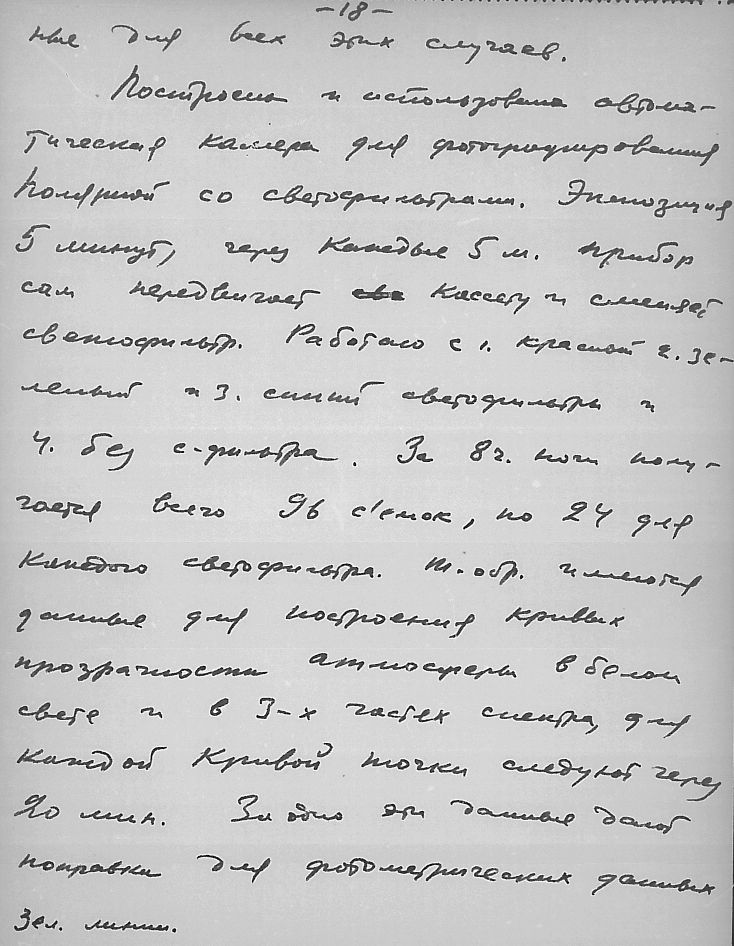 -18-
ные для всех этих случаев.
Построена и использована автома-
тическая камера для фотографирования
Полярной со светофильтрами. Экспозиция
5 минут, через каждые 5 м. прибор
сам передвигает кассету и сменяет
светофильтр. Работаю с 1. красный 2. зе-
леный и 3. синий светофильтры и
4. без с-фильтра. За 8 ч. ночи полу-
чается всего 96 с'емок, по 24 для
каждого светофильтра. Т. обр. имеются
данные для построения кривых
прозрачности атмосферы в белом
свете и в 3-х частях спектра, для
каждой кривой точки следуют через
20 мин. За одно эти данные дают
поправки для фотометрических данных
зел. линии.